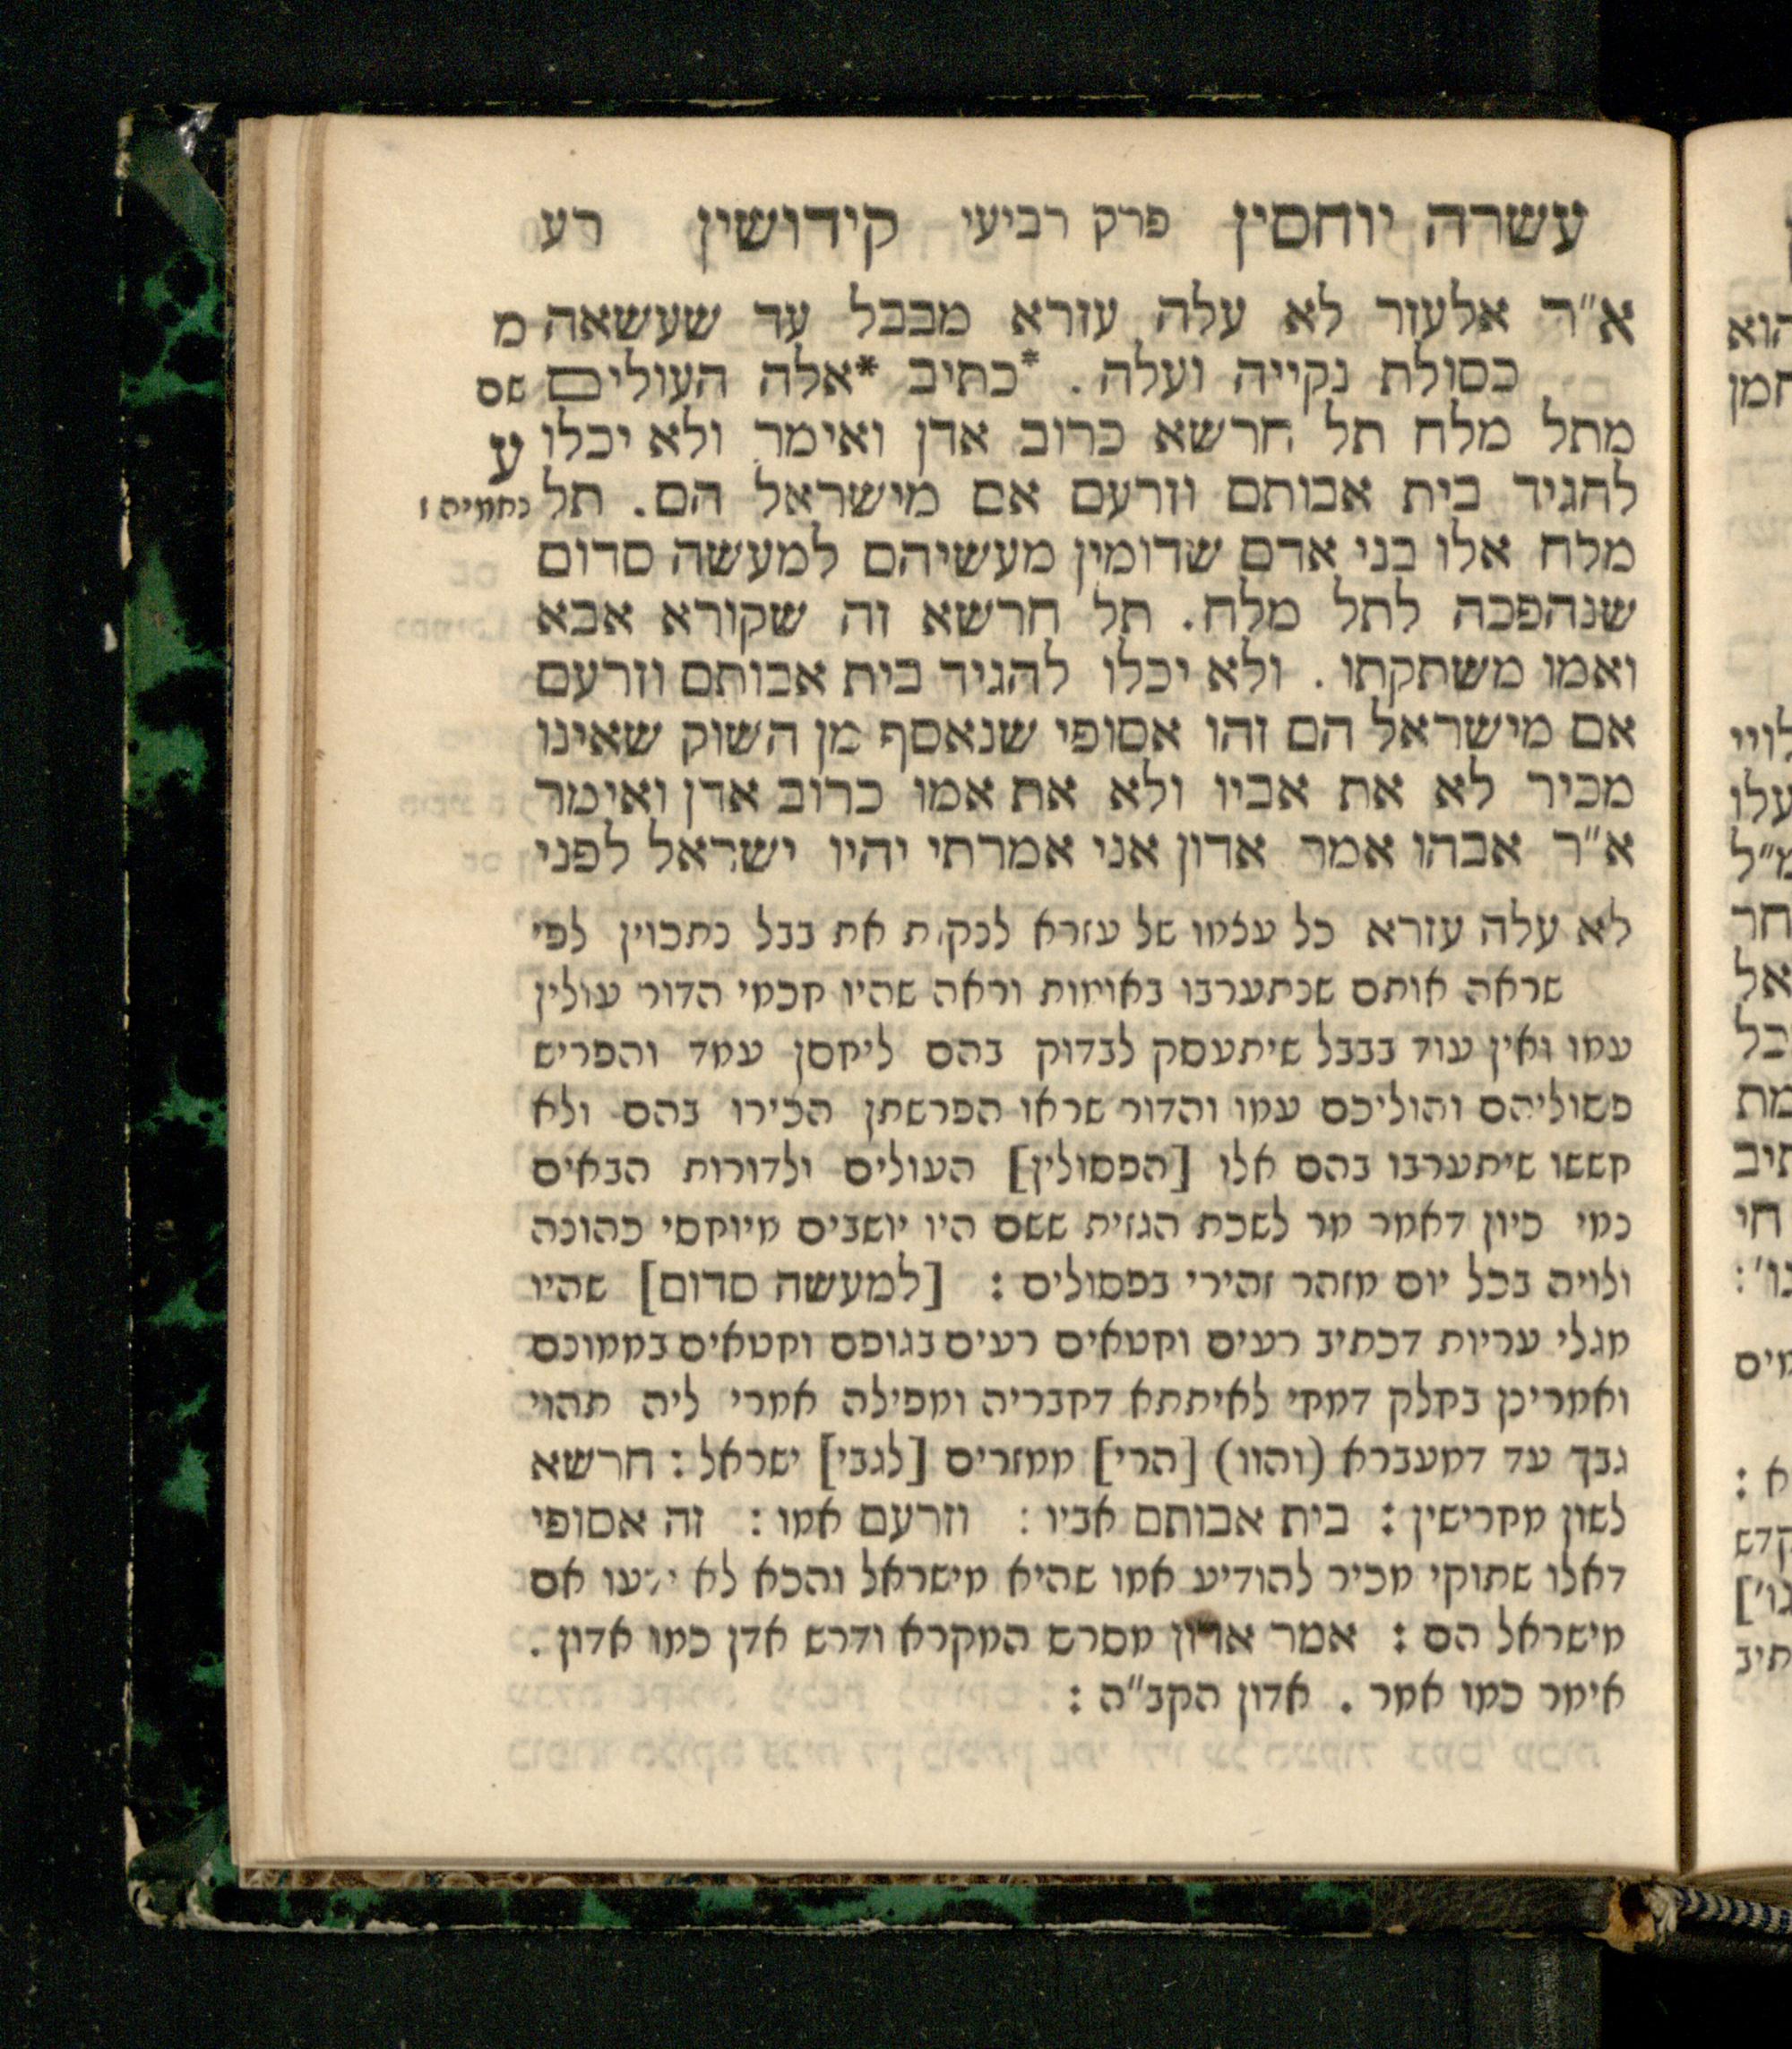 עשרה יוחסין פרק רביעי קידושין רע
א"ר אלעזר לא עלה עזרא מבבל עד שעשאה מ
כסולת נקייה ועלה. *כתיב *אלה העולים שם
מתל מלח תל חרשא כרוב אדן ואימר ולא יכלו ע
להגיד בית אבותם וזרעם אם מישראל הם. תל נחמיה ז
מלח אלו בני אדם שדומין מעשיהם למעשה סדום
שנהפכה לתל מלח. תל חרשא זה שקורא אבא
ואמו משתקתו. ולא יכלו להגיד בית אבותם וזרעם
אם מישראל הם זהו אסופי שנאסף מן השוק שאינו
מכיר לא את אביו ולא את אמו כרוב אדן ואימר
א"ר אבהו אמר אדון אני אמרתי יהיו ישראל לפני
לא עלה עזרא כל עצמו של עזרא לנקות את בבל נתכוין לפי
שראה אותם שנתערבו באומות וראה שהיו חכמי הדור עולין
עמו ואין עוד בבבל שיתעסק לבדוק בהם ליחסן עמד והפריש
פסוליהם והוליכם עמו והדור שראו הפרשתן הכירו בהם ולא
חששו שיתערבו בהם אלו [הפסולין] העולים ולדורות הבאים
נמי כיון דאמר מר לשכת הגזית ששם היו יושבים מיוחסי כהונה
ולויה בכל יום מזהר זהירי בפסולים : [למעשה סדום] שהיו
מגלי עריות דכתיב רעים וחטאים רעים בגופם וחטאים בממונם
ואמרינן בחלק דמחי לאיתתא דחבריה ומפילה אמרי ליה תהוי
גבך עד דמעברא (והוו) [הרי] ממזרים [לגבי] ישראל : חרשא
לשון מחרישין : בית אבותם אביו : וזרעם אמו : זה אסופי
דאלו שתוקי מכיר להודיע אמו שהיא מישראל והכא לא ידעו אם
מישראל הם : אמר אדון מסרס המקרא ודרש אדן כמו אדון .
אימר כמו אמר . אדון הקב"ה :